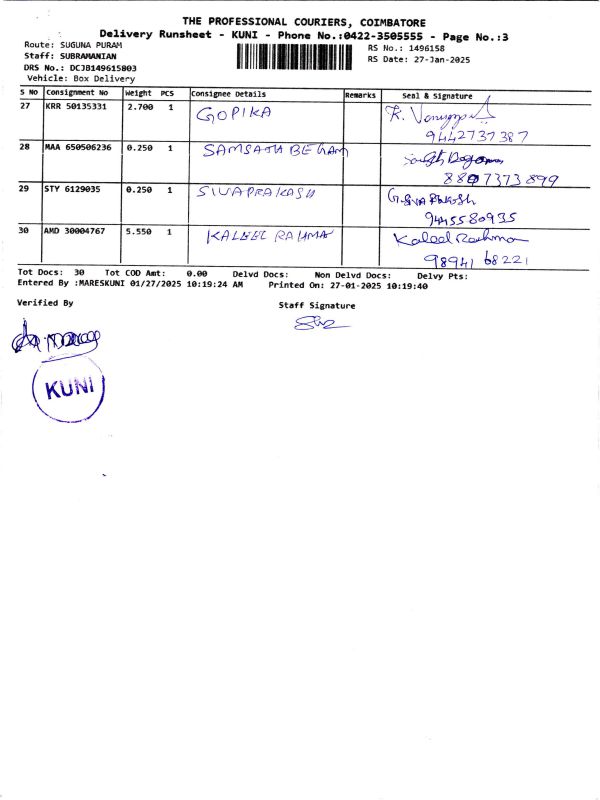 THE PROFESSIONAL COURIERS, COIMBATORE
Delivery Runsheet - KUNI - Phone No.:0422-3505555 - Page No.:3
Route: SUGUNA PURAM RS No.: 1496158
Staff: SUBRAMANIAN RS Date: 27-Jan-2025
DRS No.: DCJB149615803
Vehicle: Box Delivery
S No Consignment No Weight PCS Consignee Details Remarks Seal & Signature
27 KRR 50135331 2.700 1 GOPIKA
9442737387
28 MAA 650506236 0.250 1 SAMSATH BEGAM
8807373899
29 STY 6129035 0.250 1 SIVAPRAKASH G. SIVA PRAKASH
9445580935
30 AMD 30004767 5.550 1 KALEEL RAHMA Kaleel Rachman
98941 68221
Tot Docs: 30 Tot COD Amt: 0.00 Delvd Docs: Non Delvd Docs: Delvy Pts:
Entered By :MARESKUNI 01/27/2025 10:19:24 AM Printed On: 27-01-2025 10:19:40
Verified By Staff Signature
KUNI